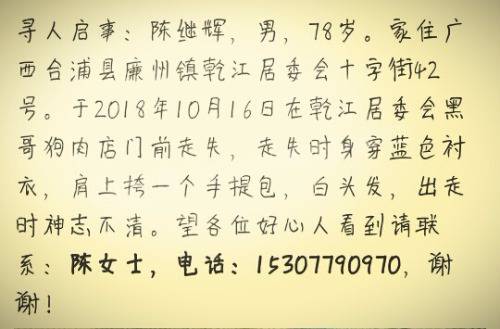 寻人启事：陈继辉，男，78岁。家住广
西合浦县廉州镇乾江居委会十字街42
号。于2018年10月16日在乾江居委会黑
哥狗肉店门前走失，走失时身穿蓝色衬
衣，肩上挎一个手提包，白头发，出走
时神志不清。望各位好心人看到请联
系：陈女士，电话：15307790970，谢
谢！